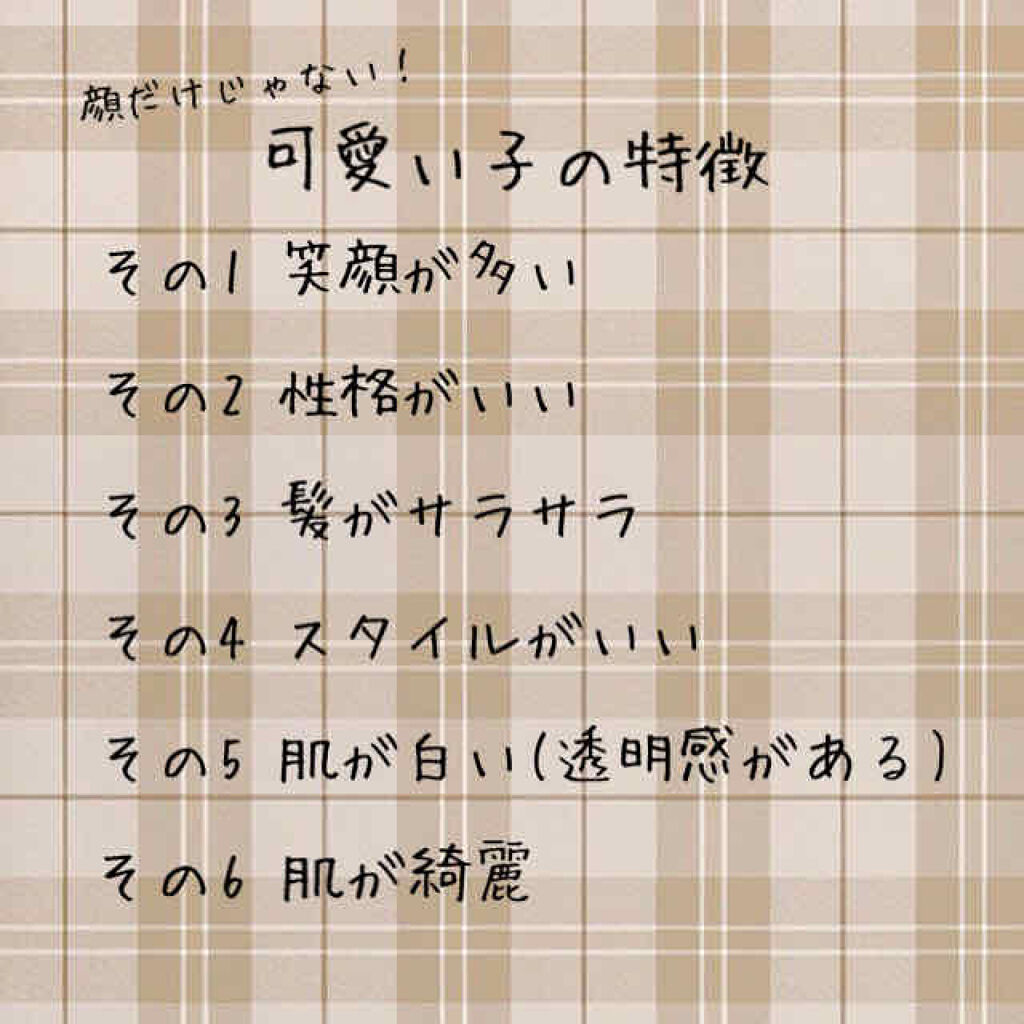 顔だけじゃない!
可愛い子の特徴
その1 笑顔が多い
その2 性格がいい
その3 髪がサラサラ
その4 スタイルがいい
その5 肌が白い(透明感がある)
その6 肌が綺麗